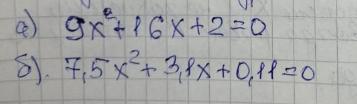 а) 9x²+16x+2=0
б). 7,5x²+3,1x+0,11=0